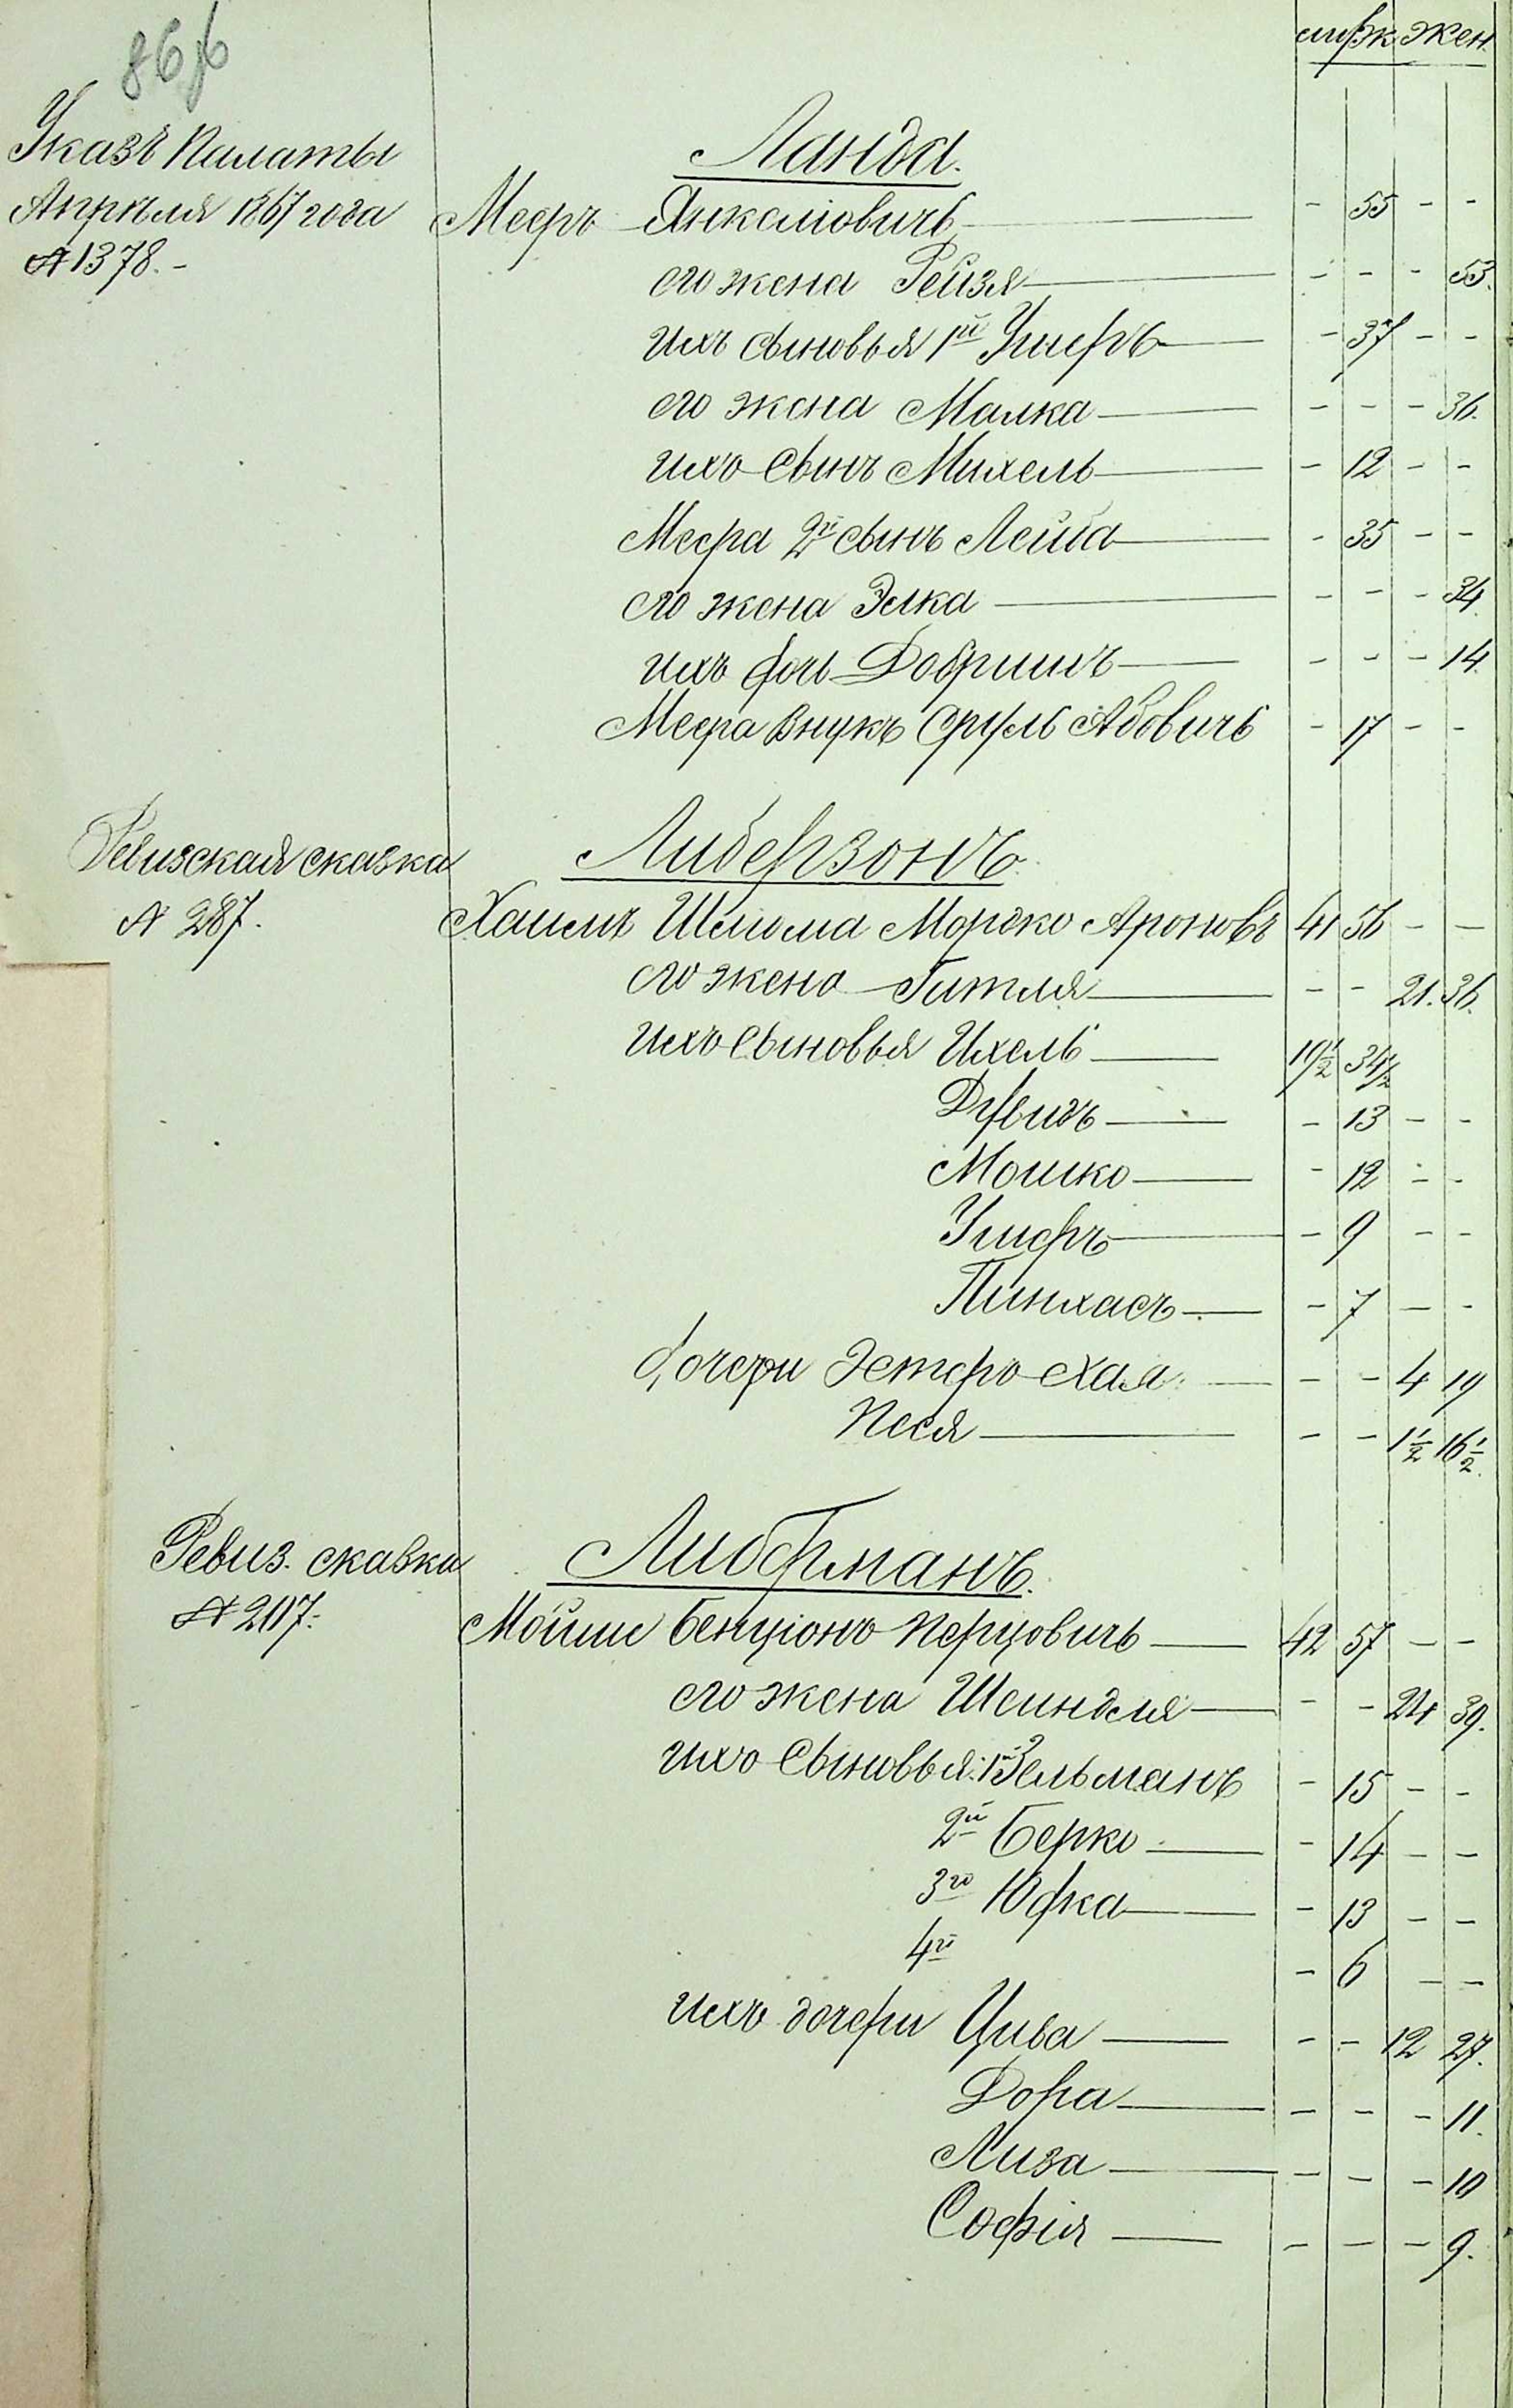 мужж жен.
Указъ Палаты
Апрѣля 1867 года
№ 1378.-
Ланда.
Мееръ Янкелiовичъ - 55 - -
его жена Рейзя - - - 53.
ихъ сыновья 1й Ушеръ - 37 - -
его жена Малка - - - 36.
ихъ сынъ Михель - 12 - -
Меера 2й сынъ Лейба - 35 - -
его жена Элка - - - 34.
ихъ дочь Добришъ - - - 14.
Меера внукъ Сруль Абовичъ - 17 - -
Ревизская сказка
№ 287.
Либерзонъ.
Хаимъ Шлиома Мордко Ароновъ 41 56 - -
его жена Гитля - - 21. 36.
ихъ сыновья Ихель 19½ 34½
Дувидъ - 13 - -
Мошко - 12 - -
Ушеръ - 9 - -
Пинхасъ - 7 - -
дочери Эстеръ Хая - - 4 19
Песя - - 1½ 16½.
Ревиз. сказка
№ 207.
Либерманъ.
Мойше Бенціонъ Перцовичъ 42 57 - -
его жена Шейндля - - 24 39.
ихъ сыновья: 1й Зельманъ - 15 - -
2й Берко - 14 - -
3й Юфка - 13 - -
4й - 6 - -
ихъ дочери Цива - - 12 27.
Дора - - - 11.
Лиза - - - 10
Софія - - - 9.